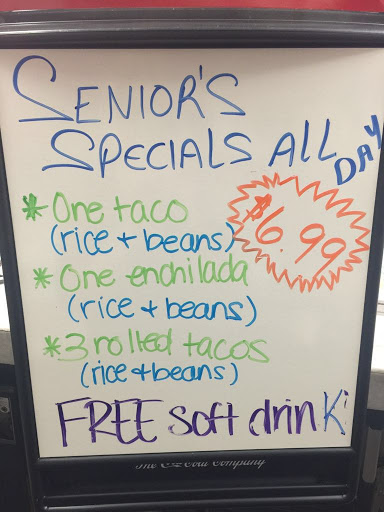 SENIOR'S
SPECIALS All DAY
* One taco
(rice + beans)
$6.99
* One enchilada
(rice + beans)
* 3 rolled tacos
(rice + beans)
FREE soft drinK
The Company